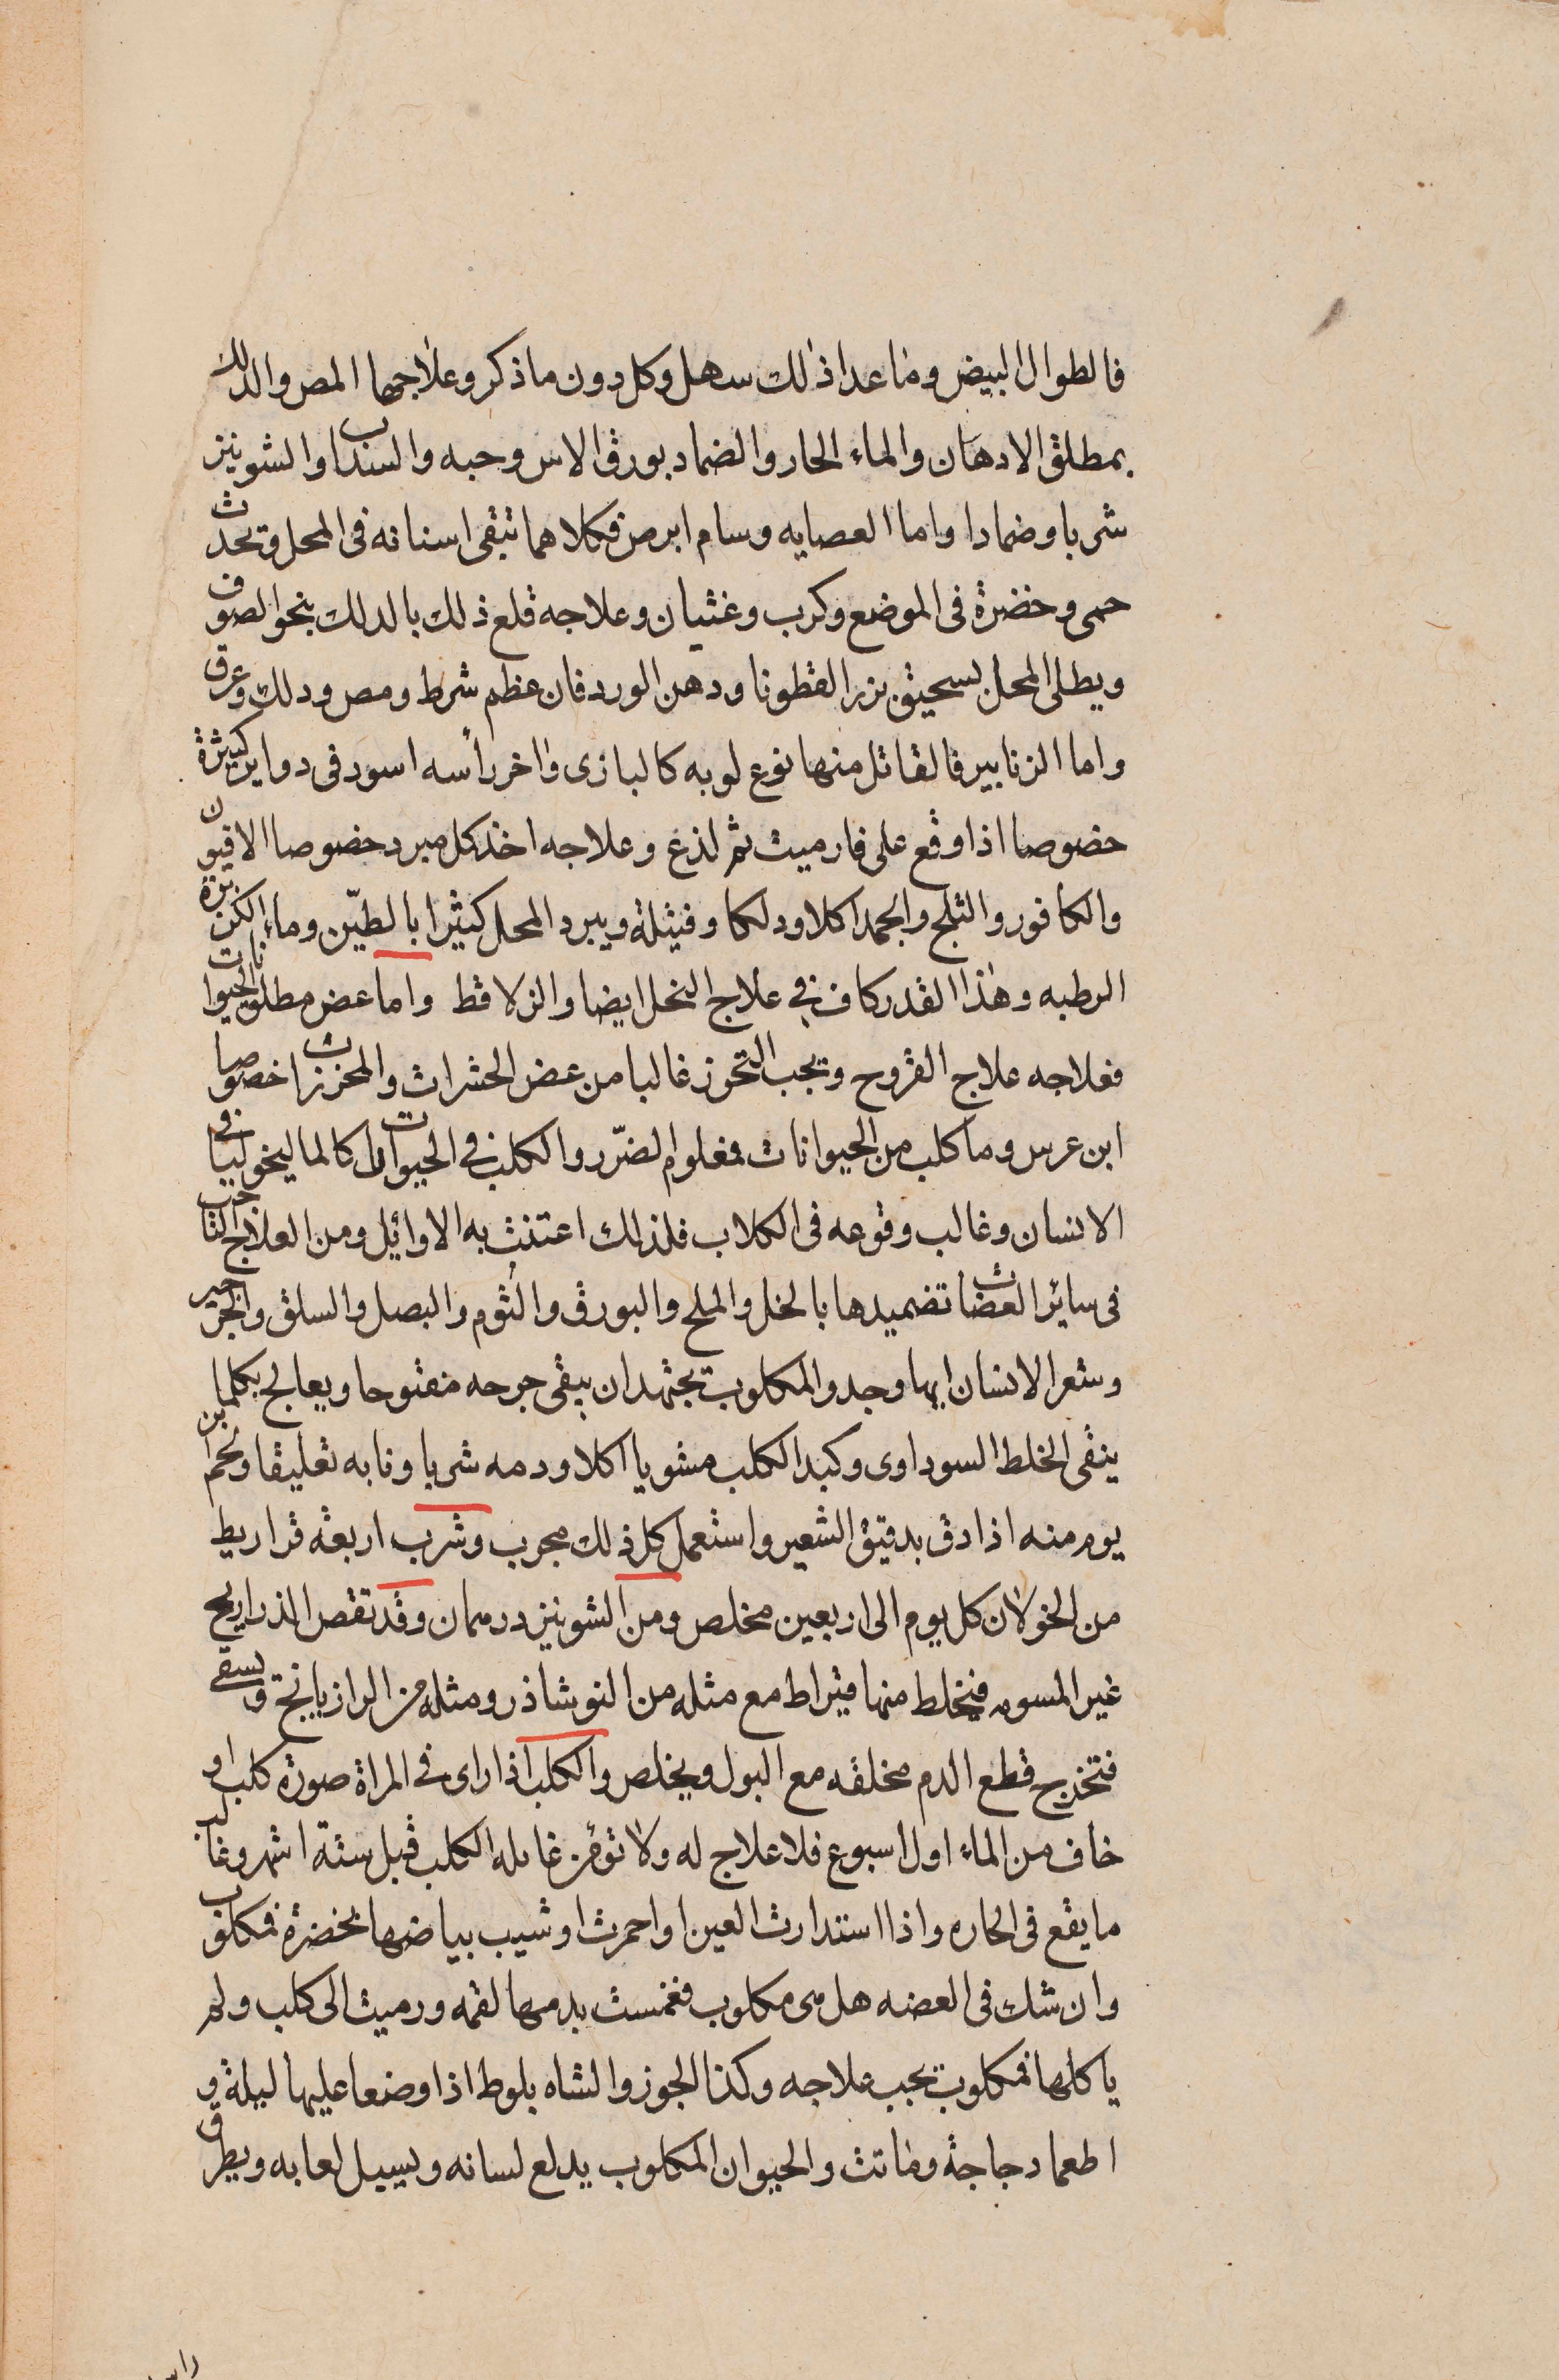 فالطوال البيض وما عدا ذلك سهل وكل دون ما ذكر وعلاجها المص والدلك
بمطلق الادهان والماء الحار والضماد بورق الاس وحبه والسنداب والشونيز
شربا وضمادا واما العصايه وسام ابرص فكلاهما تبقى اسنانه فى المحل وتحدث
حمى وخضرة فى الموضع وكرب وغثيان وعلاجه قلع ذلك بالدلك بنحو الصوف
ويطلى المحل بسحيق بزر القطونا ودهن الورد فان عظم شرط ومص ودلك وعرق
واما الزنابير فالقاتل منها نوع لوبه كالبازى واخر رأسه اسود فى دواير كثيرة
خصوصا اذا وقع على فار ميت ثم لذع وعلاجه اخذ كل مبرد خصوصا الافيون
والكافور والثلج والجمد اكلا ودلكا وفتيلة ويبرد المحل كثيرا بالطين وماء الكزبرة
الرطبه وهذا القدر كاف فى علاج النحل ايضا والزلاقط واما عض مطلق الحيوانات
فعلاجه علاج القروح ويجب التحرز غالبا من عض الحشرات والمحززات خصوصا
ابن عرس وما كلب من الحيوانات فمعلوم الضرر والكلب فى الحيوانات كالماليخوليا فى
الانسان وغالب وقوعه فى الكلاب فلذلك اعتنت به الاوائل ومن العلاج الناجب
فى سائر العضات تضميدها بالخل والملح والبورق والثوم والبصل والسلق والجرجير
وشعر الانسان ايها وجد والمكلوب يجتهد ان يبقى جرحه مفتوحا ويعالج بكلما
ينقى الخلط السوداوى وكبد الكلب مشويا اكلا ودمه شربا ونابه تعليقا ولحم ابن
يومه منه اذا دق بدقيق الشعير واستعمل كل ذلك مجرب وشرب اربعة قراريط
من الخولان كل يوم الى اربعين مخلص ومن الشونيز درهمان وقد تقص الذراريح
غير المسومه فيخلط منها قيراط مع مثله من النوشاذر ومثله من الرازيانج ويسقى
فتخرج قطع الدم مخلقه مع البول ويخلص والكلب اذا راى فى المراة صورة كلب او
خاف من الماء اول اسبوع فلا علاج له ولا تؤمن غايله الكلب قبل ستة اشهر وغالب
ما يقع فى الحاره واذا استدارت العين او احمرت او شيب بياضها بخضرة فمكلوب
وان شك فى العضه هل هى مكلوب فغمست بدمها لقمه ورميت الى كلب ولم
ياكلها فمكلوب يجب علاجه وكذا الجوز والشاه بلوط اذا وضعا عليها ليلة و
اطعما دجاجة وماتت والحيوان المكلوب يدلع لسانه ويسيل لعابه ويطرق